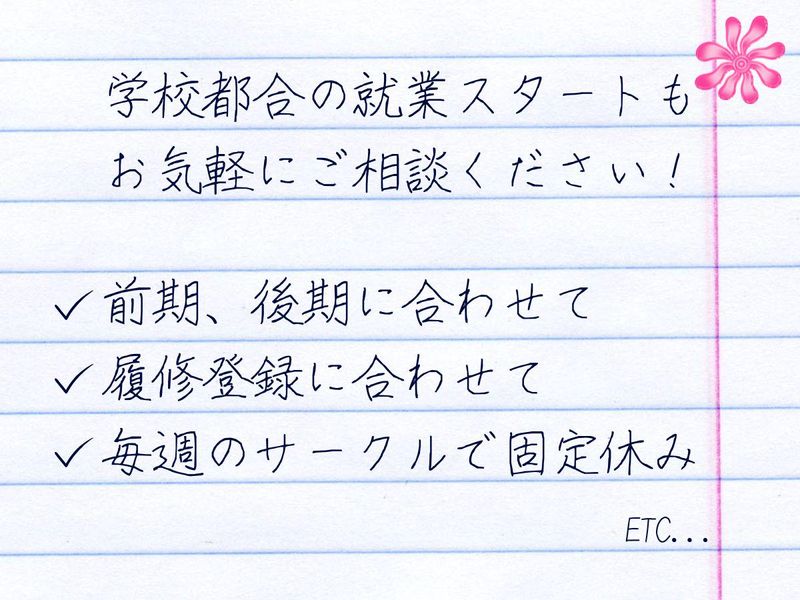 学校都合の就業スタートも
お気軽にご相談ください！
✓前期、後期に合わせて
✓履修登録に合わせて
✓毎週のサークルで固定休み
ETC...